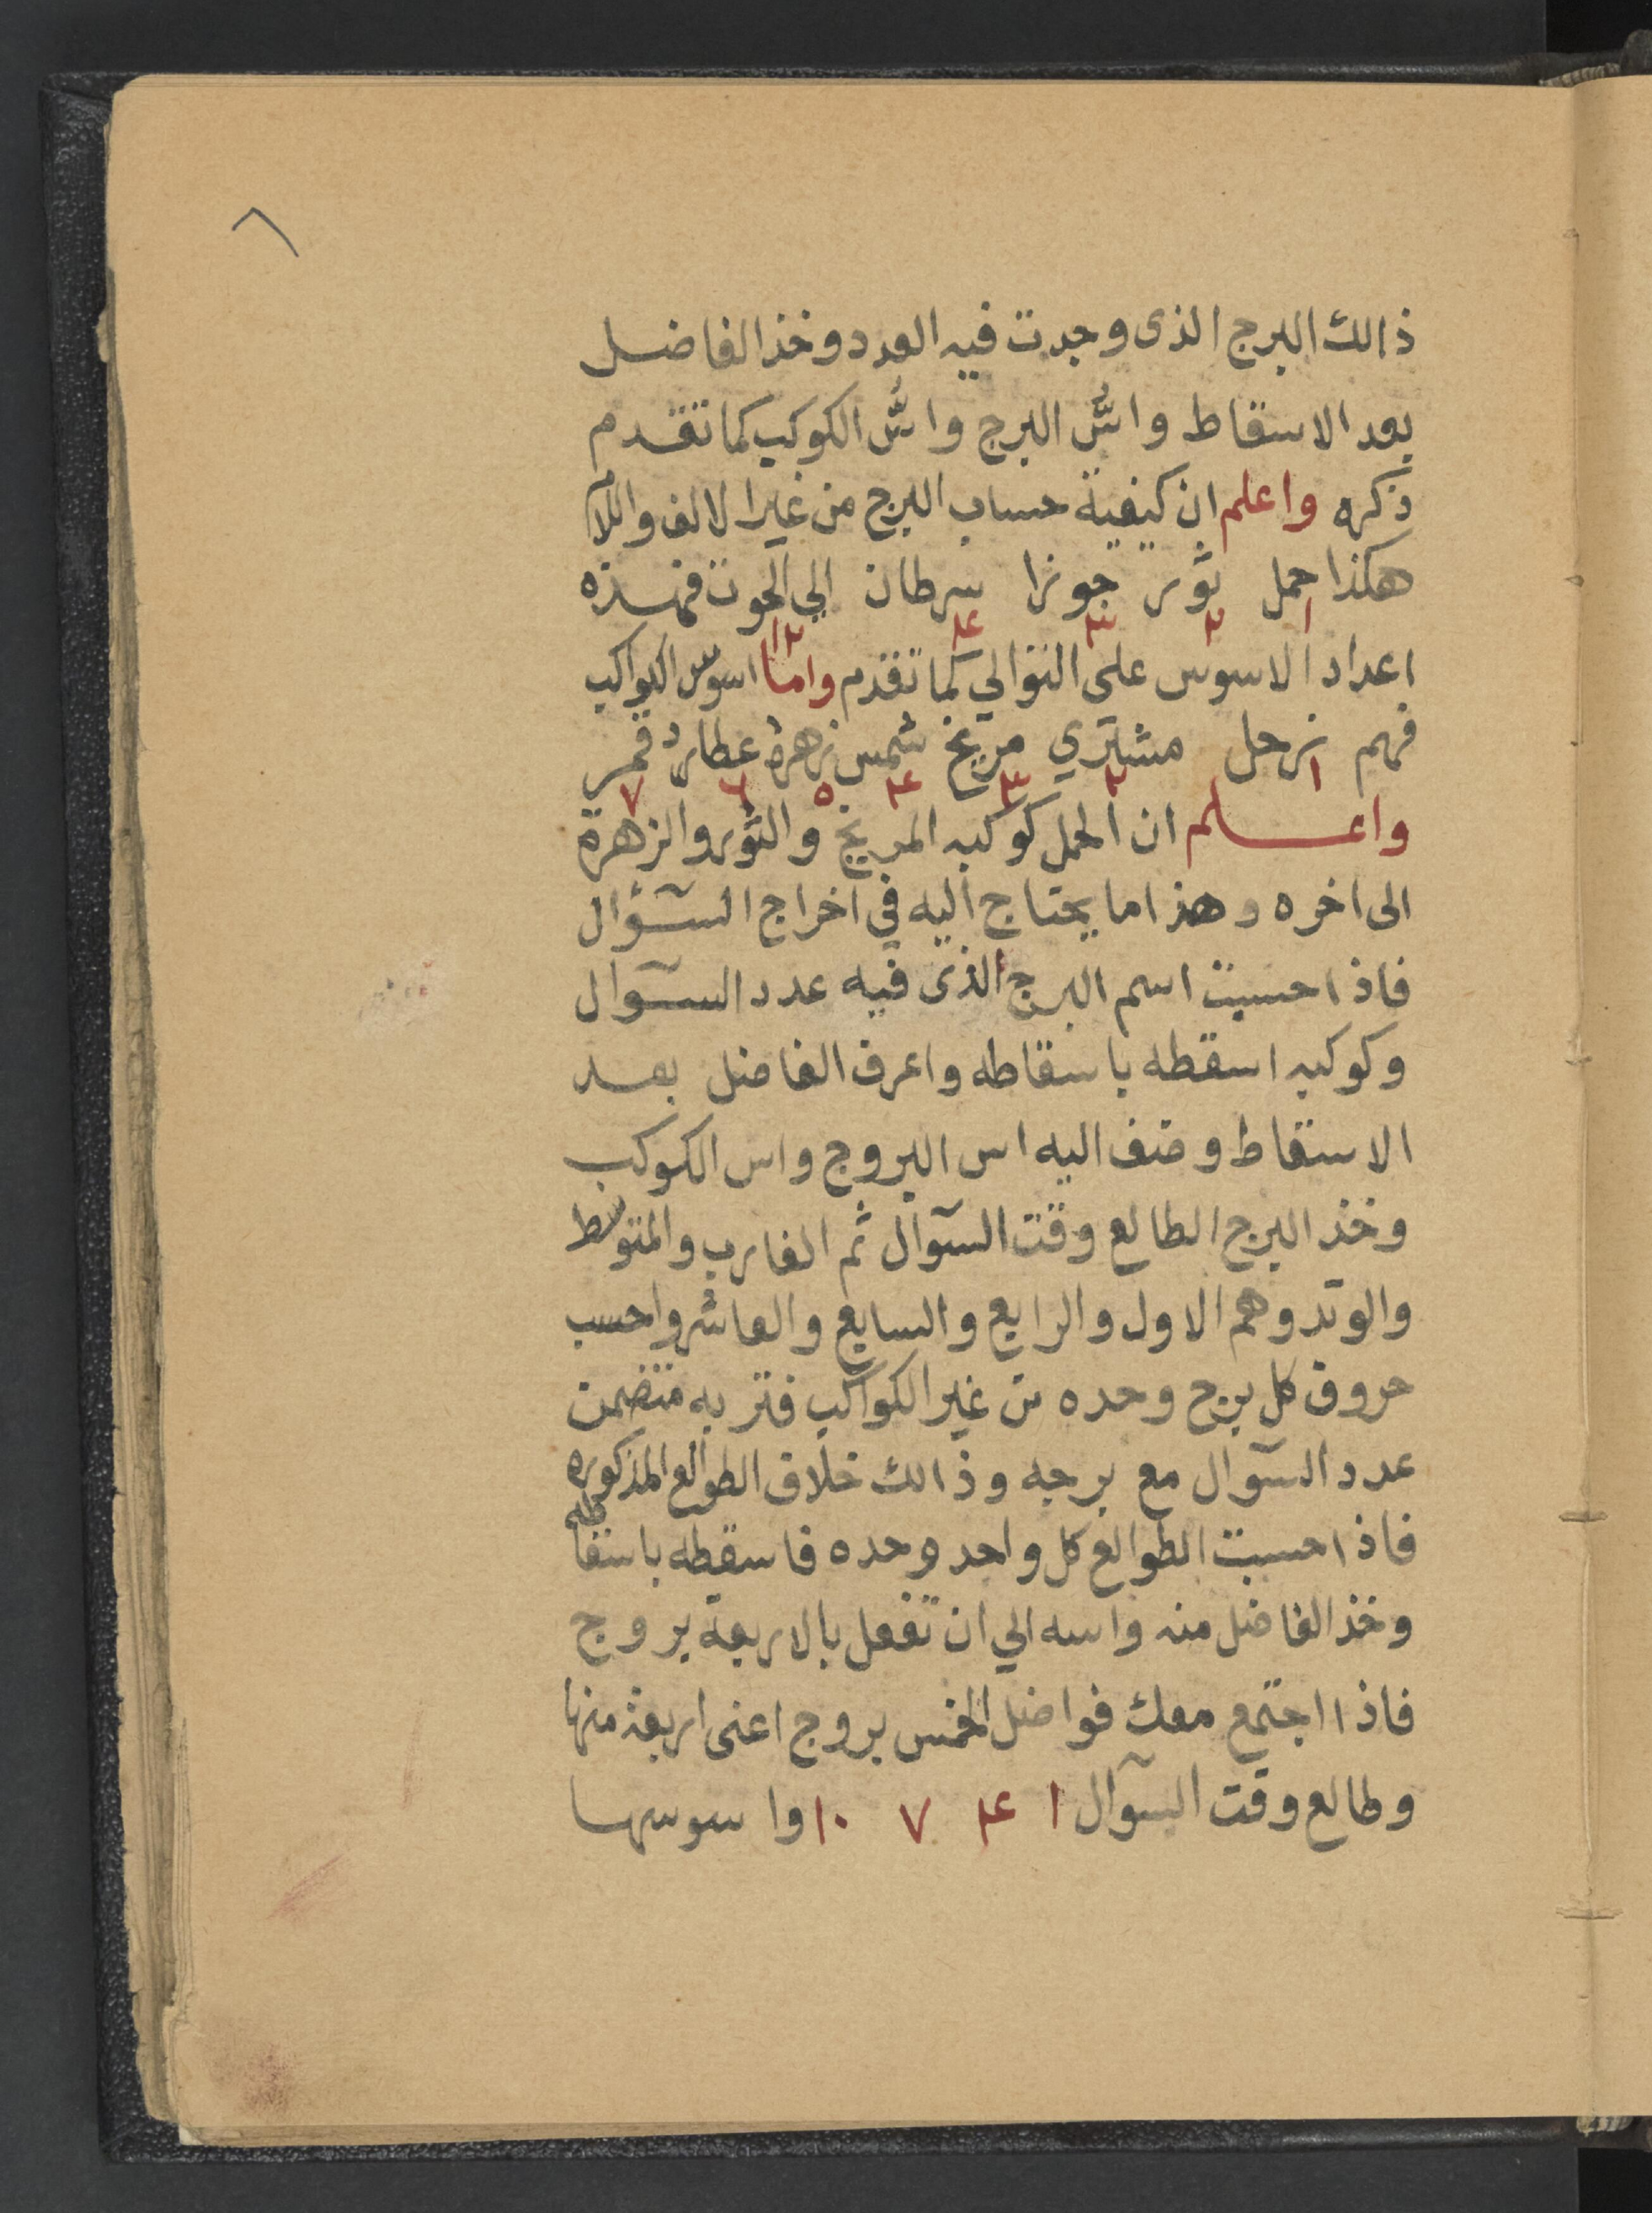 ٨
ذالك البرج الذى وجدت فيه العدد وخذ الفاضل
بعد الاسقاط واسُّ البرج واسُّ الكوكب كما تقدم
ذكره واعلم ان كيفية حساب البرج من غير الالف واللام
هكذا حمل ثور جوزا سرطان الي الحوت فهذه
١ ٢ ٣ ۴ ١٢
اعداد الاسوس على التوالي كما تقدم واما اسوس الكواكب
فهم زحل مشتري مريخ شمس زهرة عطارد قمر
١ ٢ ٣ ۴ ٥ ٦ ٧
واعلم ان الحمل كوكبه المريخ والثور والزهرة
الى اخره وهذا ما يحتاج اليه في اخراج السؤال
فاذا حسبت اسم البرج الذى فيه عدد السوآل
وكوكبه اسقطه باسقاطه واعرف الفاضل بعد
الاسقاط وضف اليه اس البروج واس الكوكب
وخذ البرج الطالع وقت السوآل ثم الغارب والمتوسط
والوتد وهم الاول والرابع والسابع والعاشر واحسب
حروف كل برج وحده من غير الكواكب فتر به متضمن
عدد السوآل مع برجه وذالك خلاف الطوالع المذكوره
فاذا حسبت الطوالع كل واحد وحده فاسقطه باسقاطه
وخذ الفاضل منه واسه الي ان تفعل بالاربعة بروج
فاذا اجتمع معك فواضل الخمس بروج اعنى اربعة منها
وطالع وقت السوآل ١ ۴ ٧ ١٠ واسوسها